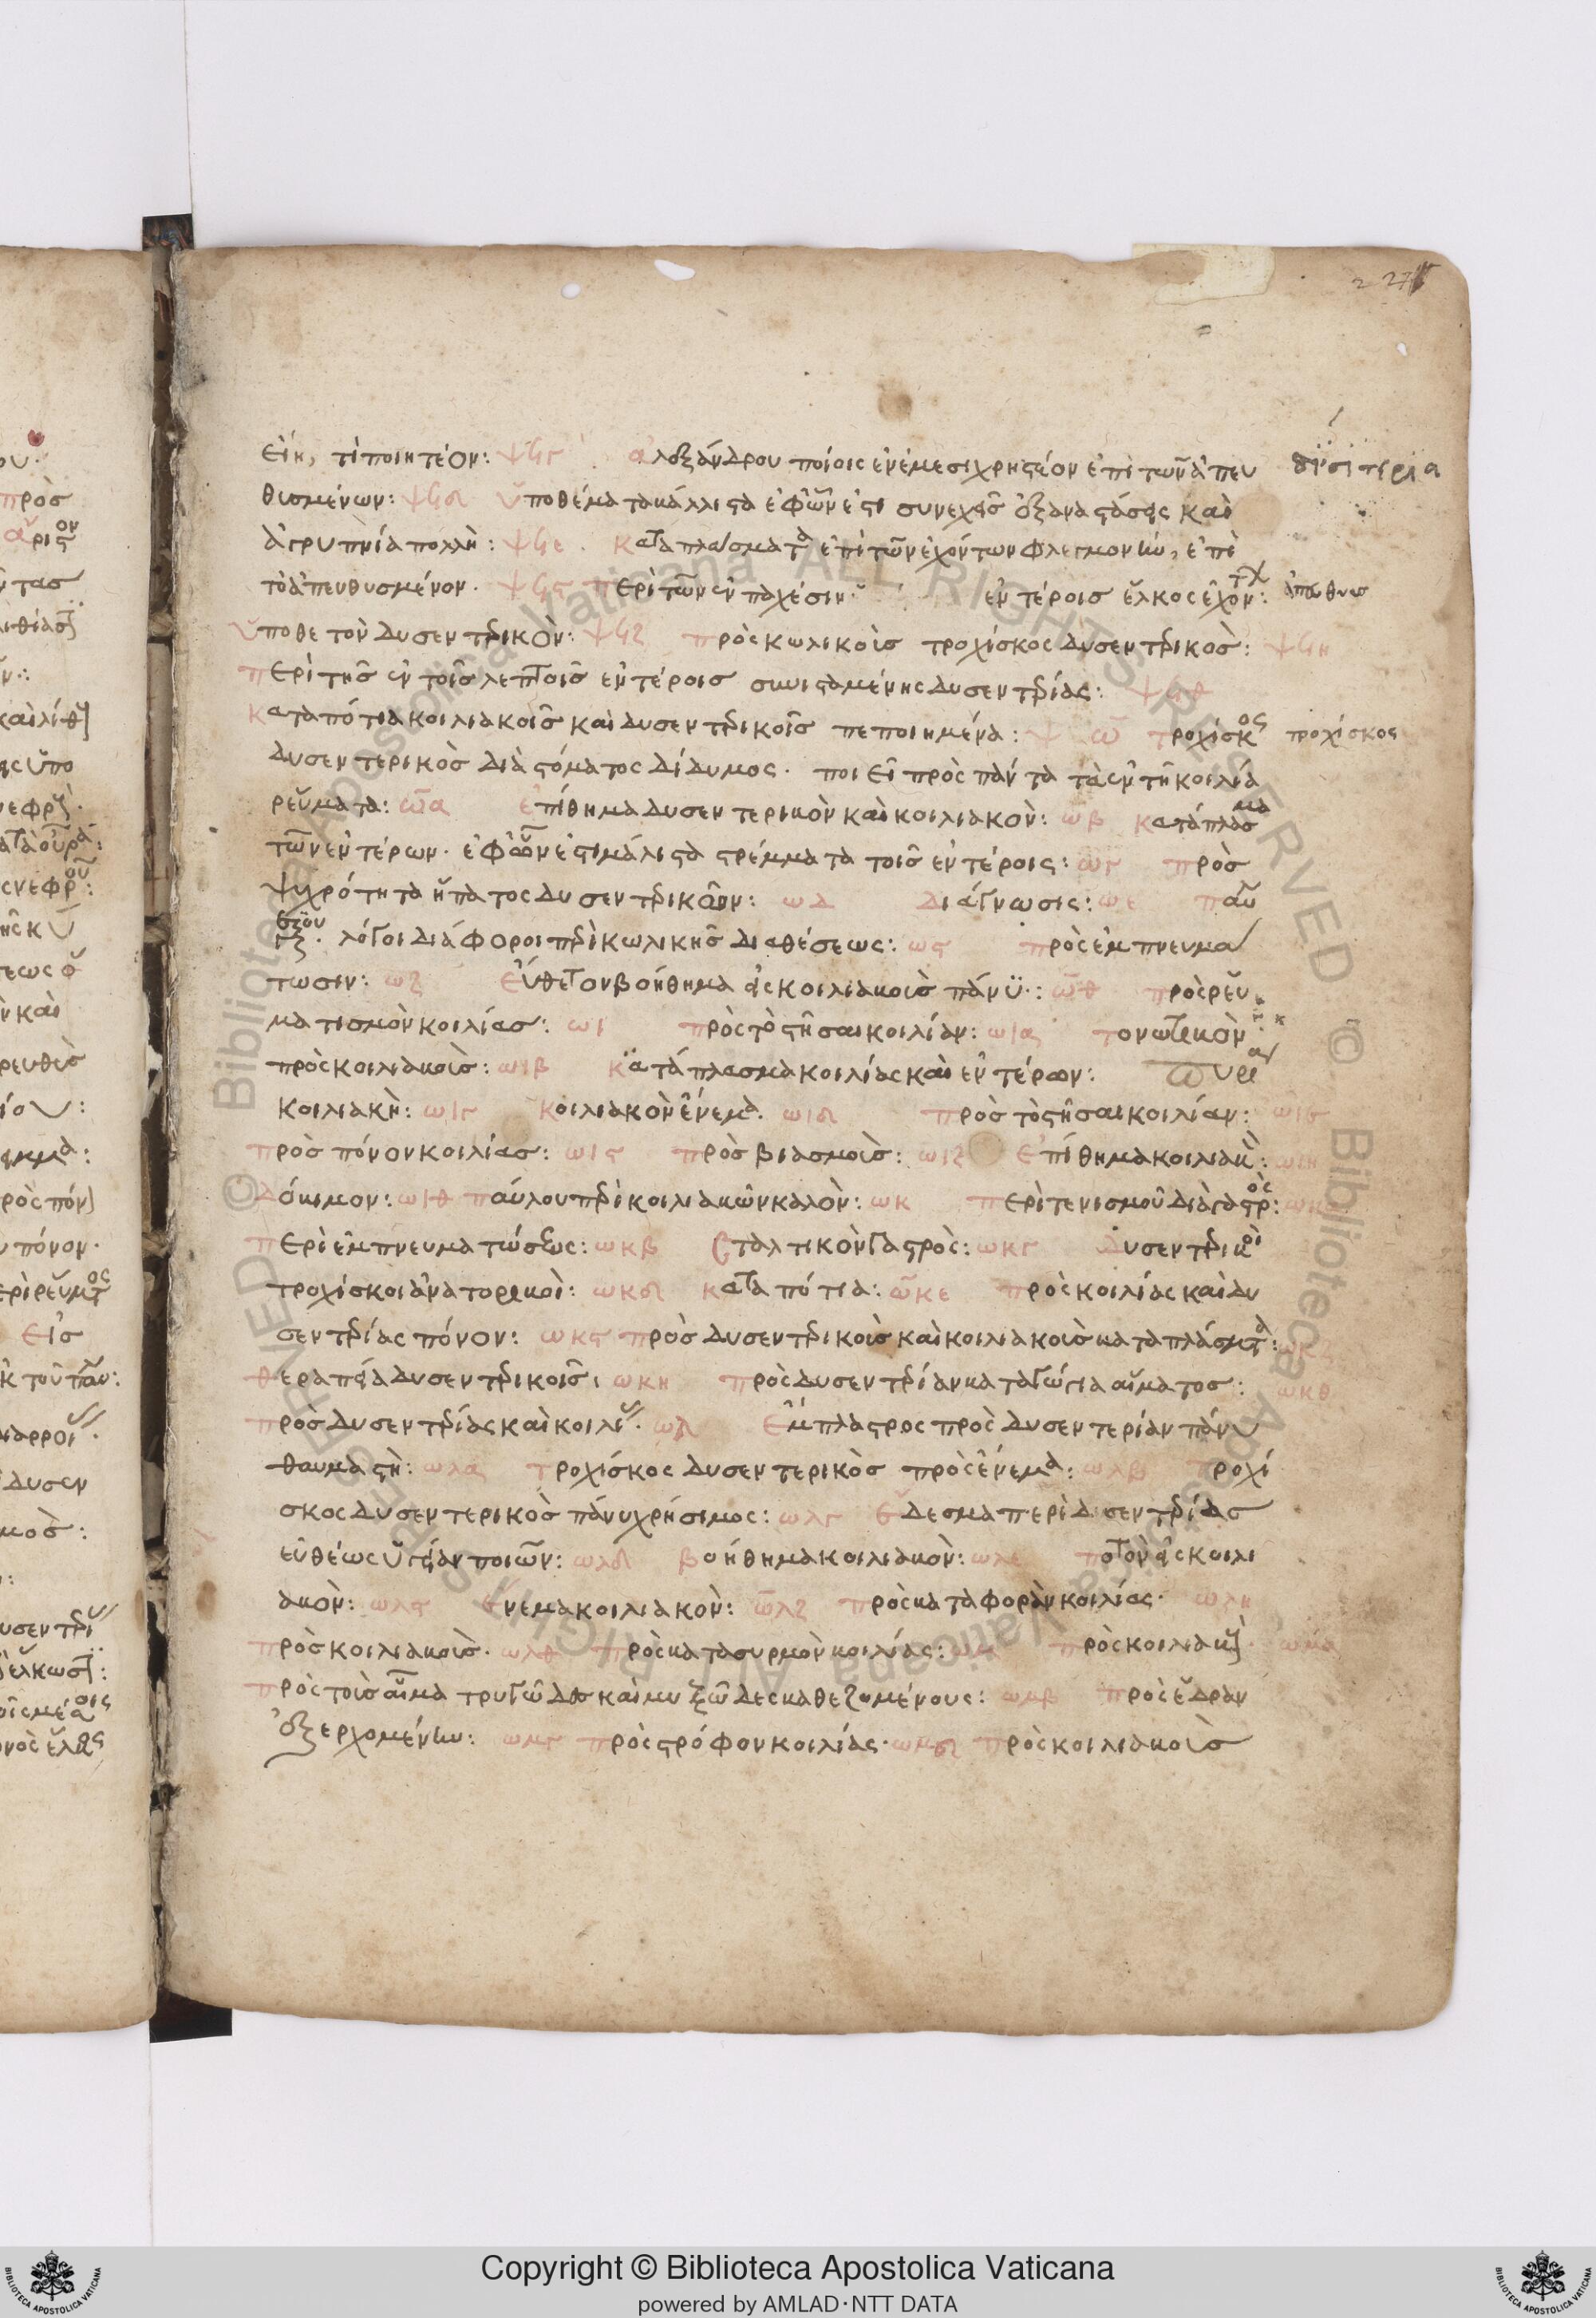 εἴη, τί ποιητέον: ψϟγ ἀλεξάνδρου ποίοις ἐνέμεσι χρηστέον ἐπὶ τῶν ἀπευ
θισμένων: ψϟδ ὑποθέματα κάλλιστα ἐφ' ὧν ἐστι συνεχεῖς ἐξαναστάσεις καὶ
ἀγρυπνία πολλή: ψϟε καταπλάσματα ἐπὶ τῶν ἐχόντων φλεγμονὴν, ἐπὶ
τὸ ἀπευθυσμένον. ψϟς περὶ τῶν ἐν παχέσιν ἐντέροις ἕλκος ἐχόντ:
ὑποθετὸν δυσεντρικὸν: ψϟζ πρὸς κωλικοὶς τροχίσκος δυσεντρικὸς: ψϟη
περὶ τῆς ἐν τοῖς λεπτοῖς ἐντέροις συνισταμένης δυσεντρίας: ψϟθ
καταπότια κοιλιακοῖς καὶ δυσεντρικοῖς πεποιημένα: ω τροχίσκος τροχίσκος
δυσεντερικὸς διὰ στόματος δίδυμος. ποιεῖ πρὸς πάντα τὰ ἐν τῇ κοιλία
ρεύματα: ωα ἐπίθημα δυσεντερικὸν καὶ κοιλιακὸν: ωβ κατάπλασμα
τῶν ἐντέρων. ἐφ' ὧν ἐστι μάλιστα στρέμματα τοῖς ἐντέροις: ωγ πρὸς
ψυχρότητα ἥπατος δυσεντρικῶν: ωδ διάγνωσις: ωε παῦ
λόγοι διάφοροι πρὶ κωλικῆς διαθέσεως: ως πρὸς ἐμπνευμα
τωσιν: ωζ εὔθετον βοήθημα εἰς κοιλιακοὶς πάνυ: ωθ πρὸς ρευ
ματισμὸν κοιλίας: ωι πρὸς τὸ στῆσαι κοιλίαν: ωια τονωτικὸν
πρὸς κοιλιακοὶς: ωιβ κατάπλασμα κοιλίας καὶ ἐντέρων:
κοιλιακὴ: ωιγ κοιλιακὸν ἔνεμα. ωιδ πρὸς τὸ στῆσαι κοιλίαν:
πρὸς πόνον κοιλίας: ωις πρὸς βιασμοὶς: ωιζ ἐπίθημα κοιλιακ: ωιη
δόκιμον: ωιθ παύλου πρὶ κοιλιακῶν καλὸν: ωκ περὶ τενισμοῦ διὰ γαστρὸς:
περὶ ἐμπνευματώσεως: ωκβ σταλτικὸν γαστρὸς: ωκγ δυσεντρικοὶ
τροχίσκοι ἀνατορικοὶ: ωκδ καταπότια: ωκε πρὸς κοιλίας καὶ δυ
σεντρίας πόνον: ωκς πρὸς δυσεντρικοὶς καὶ κοιλιακοὶς καταπλάσματα: ωκζ
θεραπεία δυσεντρικοῖς. ωκη πρὸς δυσεντρίαν καταγώγια αἵματος: ωκθ
πρὸς δυσεντρίας καὶ κοιλι. ωλ ἔμπλαστρος πρὸς δυσεντερίαν πάνυ
θαυμαστὴ: ωλα τροχίσκος δυσεντερικὸς πρὸς ἔνεμα: ωλβ τροχί
σκος δυσεντερικὸς πάνυ χρήσιμος: ωλγ ἔδεσμα περὶ δυσεντρίας
εὐθέως ὑγείαν ποιῶν: ωλδ βοήθημα κοιλιακὸν: ωλε ποτὸν εἰς κοιλι
ακὸν: ωλς ἔνεμα κοιλιακὸν: ωλζ πρὸς καταφορὰν κοιλίας. ωλη
πρὸς κοιλιακοὶς. ωλθ πρὸς κατασυρμὸν κοιλίας: ωμ πρὸς κοιλιακ ωμα
πρὸς τοὶς αἷμα τρυγῶδες καὶ μυξῶδες καθεζομένους: ωμβ πρὸς ἕδραν
ἐξερχομένην: ωμγ πρὸς στρόφον κοιλίας. ωμδ πρὸς κοιλιακοὺς
Copyright © Biblioteca Apostolica Vaticana
powered by AMLAD·NTT DATA